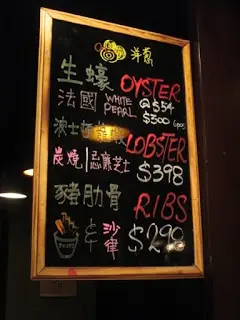 洋蔥
生蠔 OYSTER
法國 WHITE PEARL @ $54
$300 6pcs
波士頓龍蝦 LOBSTER
炭燒 | 忌廉芝士 $398
豬肋骨 RIBS
& 沙律 $290